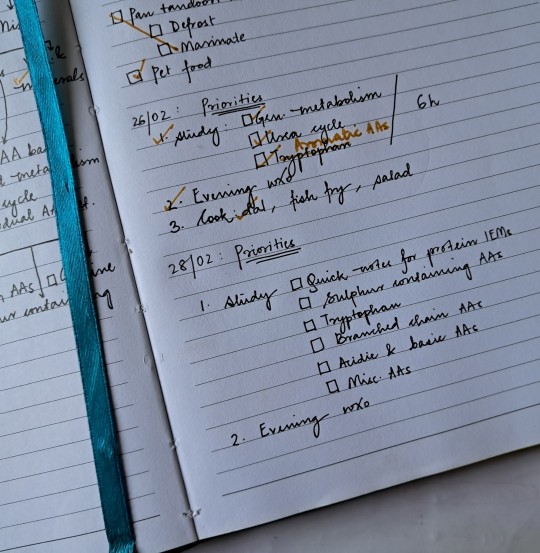 Mis
als
AA ba
d metabolism
cycle
dual A
AAs □ G ine
ur contai g
□ Pan tandoori
□ Defrost
□ Marinate
□ Pet food
26/02: Priorities
1. Study: □ Gen. metabolism
□ Urea cycle
□ Tryptophan Aromatic AAs
6h
2. Evening wxo
3. Cook dal, fish fry, salad
28/02: Priorities
1. Study □ Quick-notes for protein IEMs
□ Sulphur containing AAs
□ Tryptophan
□ Branched chain AAs
□ Acidic & basic AAs
□ Misc. AAs
2. Evening wxo